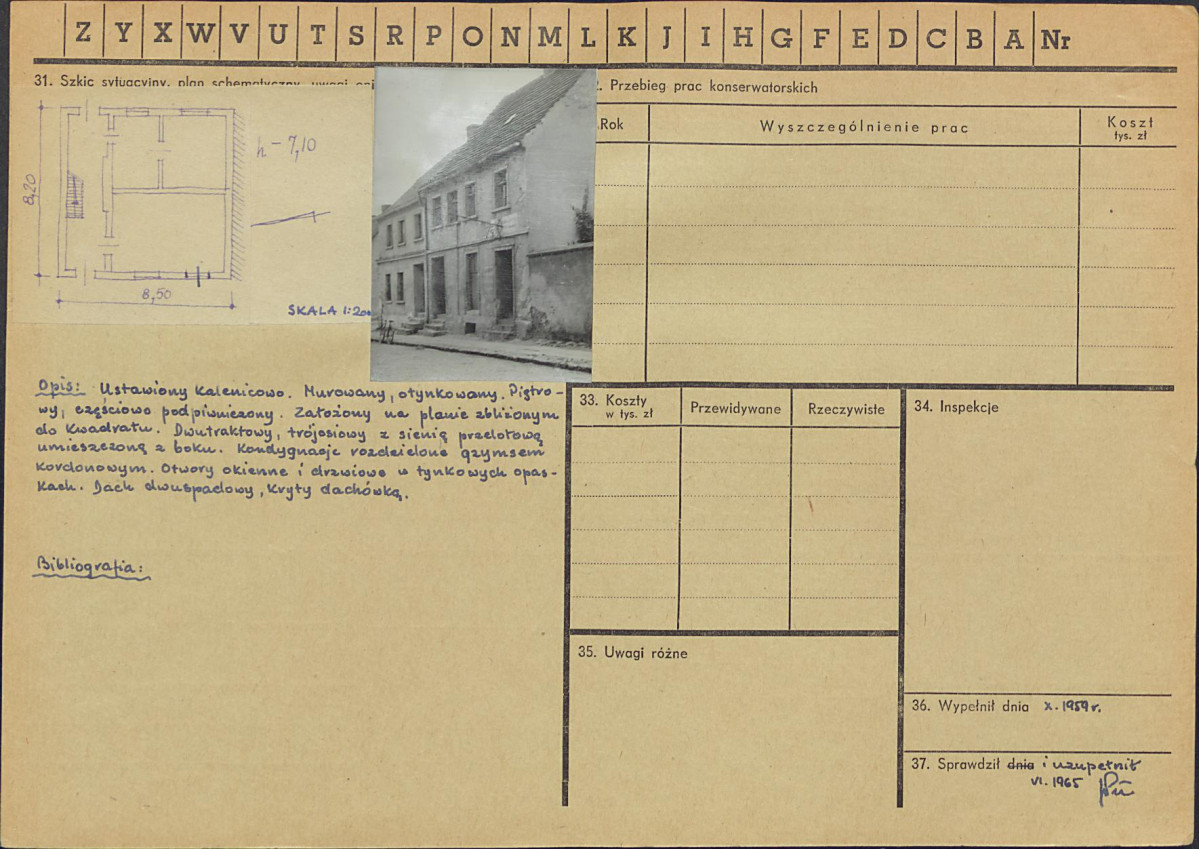 Z Y X W V U T S R P O N M L K J I H G F E D C B A Nr
31. Szkic sytuacyjny, plan schematyczny, uwagi
h - 7,10
8,20
8,50
SKALA 1:200
Opis: Ustawiony kalenicowo. Murowany, otynkowany. Piętro-
wy, częściowo podpiwniczony. Założony na planie zbliżonym
do kwadratu. Dwutraktowy, trójosiowy z sienią przelotową
umieszczoną z boku. Kondygnacje rozdzielone gzymsem
kordonowym. Otwory okienne i drzwiowe w tynkowych opas-
kach. Dach dwuspadowy, kryty dachówką.
Bibliografia:
Przebieg prac konserwatorskich
Rok
Wyszczególnienie prac
Koszt
tys. zł
33. Koszty
w tys. zł
Przewidywane
Rzeczywiste
34. Inspekcje
35. Uwagi różne
36. Wypełnił dnia X. 1959 r.
37. Sprawdził dnia i uzupełnił
VI. 1965